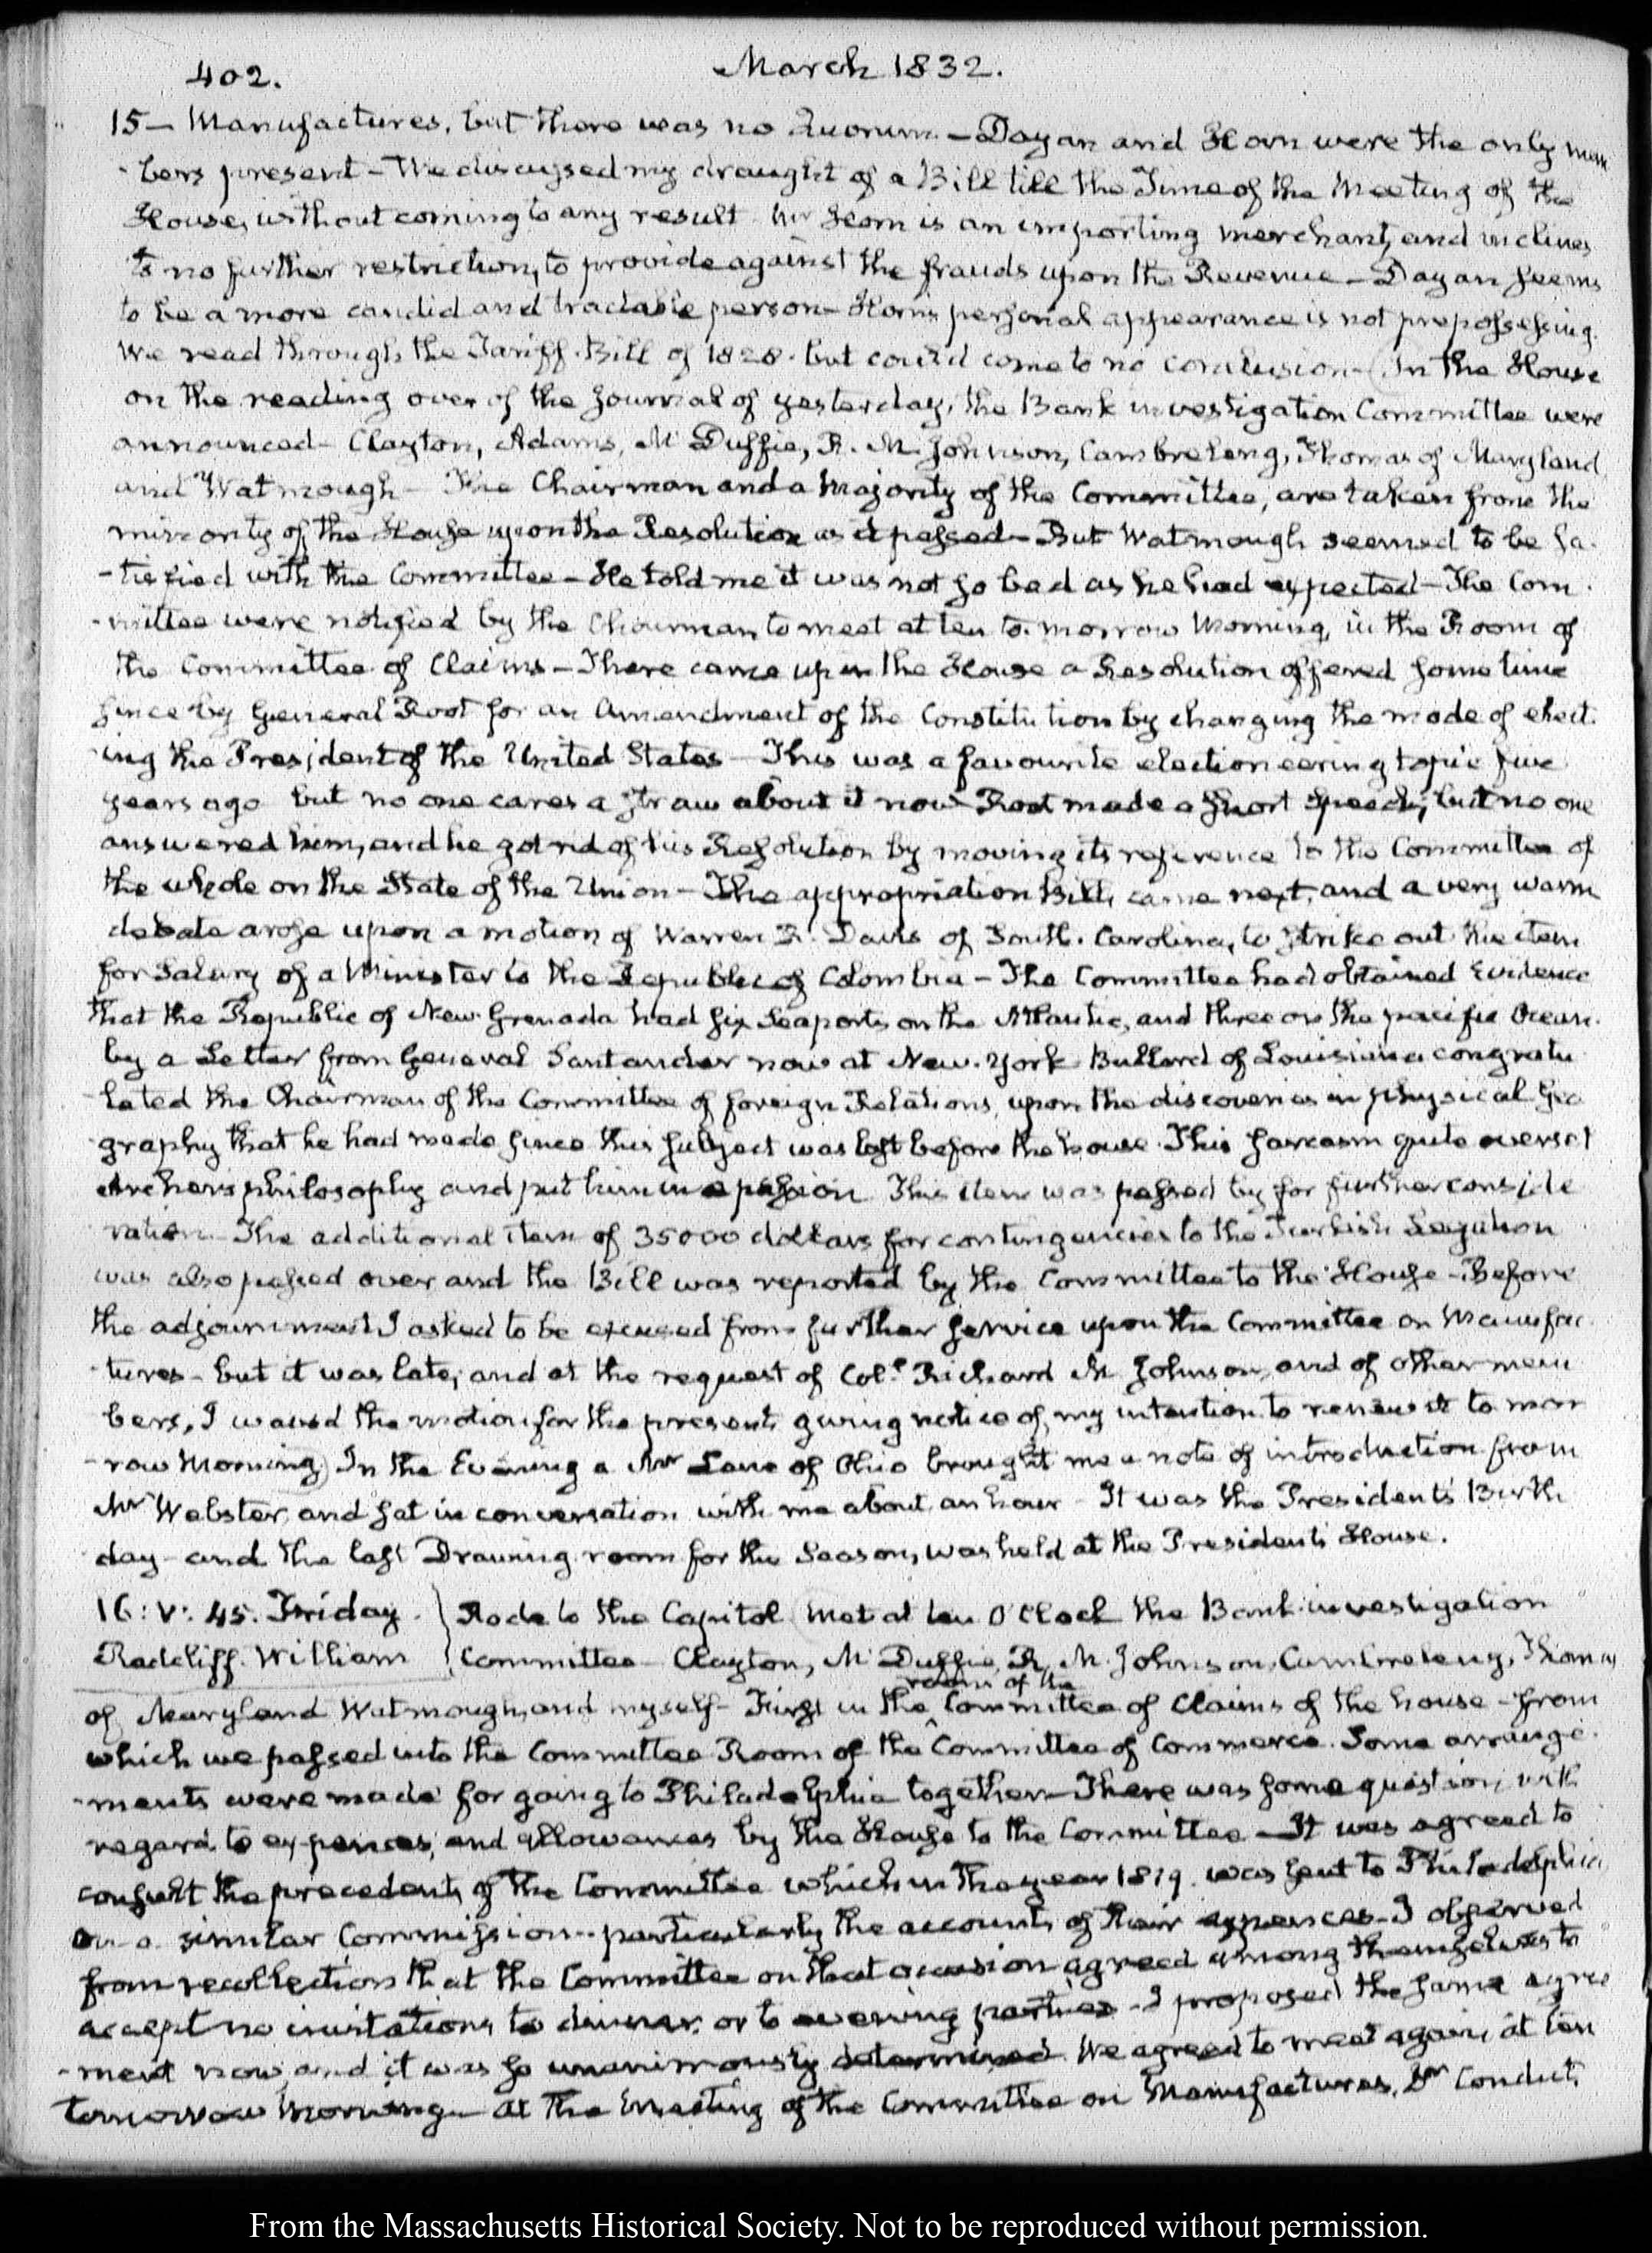 402.
March 1832.
15 — Manufactures, but there was no Quorum — Dayan and Horn were the only mem
-bers present — We discussed my draught of a Bill till the Time of the Meeting of the
House, without coming to any result. Mr Horn is an importing merchant, and inclines
to no further restriction, to provide against the frauds upon the Revenue — Dayan seems
to be a more candid and tractable person — Horn's personal appearance is not prepossessing.
We read through the Tariff-Bill of 1828. but could come to no conclusion — In the House
on the reading over of the Journal of yesterday, the Bank investigation Committee were
announced — Clayton, Adams, McDuffie, R. M. Johnson, Cambreleng, Thomas of Maryland,
and Watmough — The Chairman and a majority of the Committee, are taken from the
minority of the House upon the Resolution as it passed — But Watmough seemed to be sa-
-tisfied with the Committee — He told me it was not so bad as he had expected — The Com-
-mittee were notified by the Chairman, to meet at ten to-morrow Morning, in the Room of
the Committee of Claims — There came up in the House a Resolution offered some time
since by General Root for an Amendment of the Constitution by changing the mode of elect-
-ing the President of the United States — This was a favourite electioneering topic five
years ago but no one cares a straw about it now — Root made a short speech, but no one
answered him, and he got rid of his Resolution by moving its reference to the Committee of
the whole on the State of the Union — The appropriation Bill, came next, and a very warm
debate arose upon a motion of Warren R. Davis of South-Carolina, to strike out the item
for Salary of a Minister to the Republic of Colombia — The Committee had obtained Evidence
that the Republic of New-Grenada had six Seaports on the Atlantic, and three on the pacific Ocean.
by a Letter from General Santander now at New-York. Bullard of Louisiana congratu
-lated the Chairman of the Committee of foreign Relations, upon the discoveries in physical Geo
-graphy that he had made since this subject was last before the house. This sarcasm quite overset
Archer's philosophy and put him in a passion. This item was passed by for further conside
ration — The additional item of 35000 dollars for contingencies to the Turkish Legation
was also passed over and the Bill was reported by the Committee to the House — Before
the adjournment I asked to be excused from further service upon the Committee on Manufac
-tures — but it was late, and at the request of Coll. Richard M. Johnson, and of other mem
bers, I waived the motion for the present, giving notice of my intention to renew it to mor
-row Morning. In the Evening a Mr Lane of Ohio brought me a note of introduction from
Mr Webster, and sat in conversation with me about an hour — It was the President's Birth
day — and the last Drawing room for the Season, was held at the President's House.
16: V: 45. Friday. Rode to the Capitol. Met at ten O'Clock the Bank-investigation
Radcliff. William Committee — Clayton, McDuffie, R. M. Johnson, Cambreleng, Thomas
room of the
of Maryland Watmough, and myself — First in the Committee of Claims of the house — from
which we passed into the Committee Room of the Committee of Commerce. Some arrange-
-ments were made for going to Philadelphia together — There was some question, with
regard to expences, and allowances by the House to the Committee — It was agreed to
consult the precedents of the Committee which in the year 1819. was sent to Philadelphia
on a similar Commission — particularly the accounts of their expences — I observed
from recollection that the Committee on that occasion agreed among themselves to
accept no invitations to dinner, or to evening parties — I proposed the same agree
-ment now, and it was so unanimously determined. We agreed to meet again, at ten
tomorrow Morning — At the Meeting of the Committee on Manufactures, Dr Condict,
From the Massachusetts Historical Society. Not to be reproduced without permission.